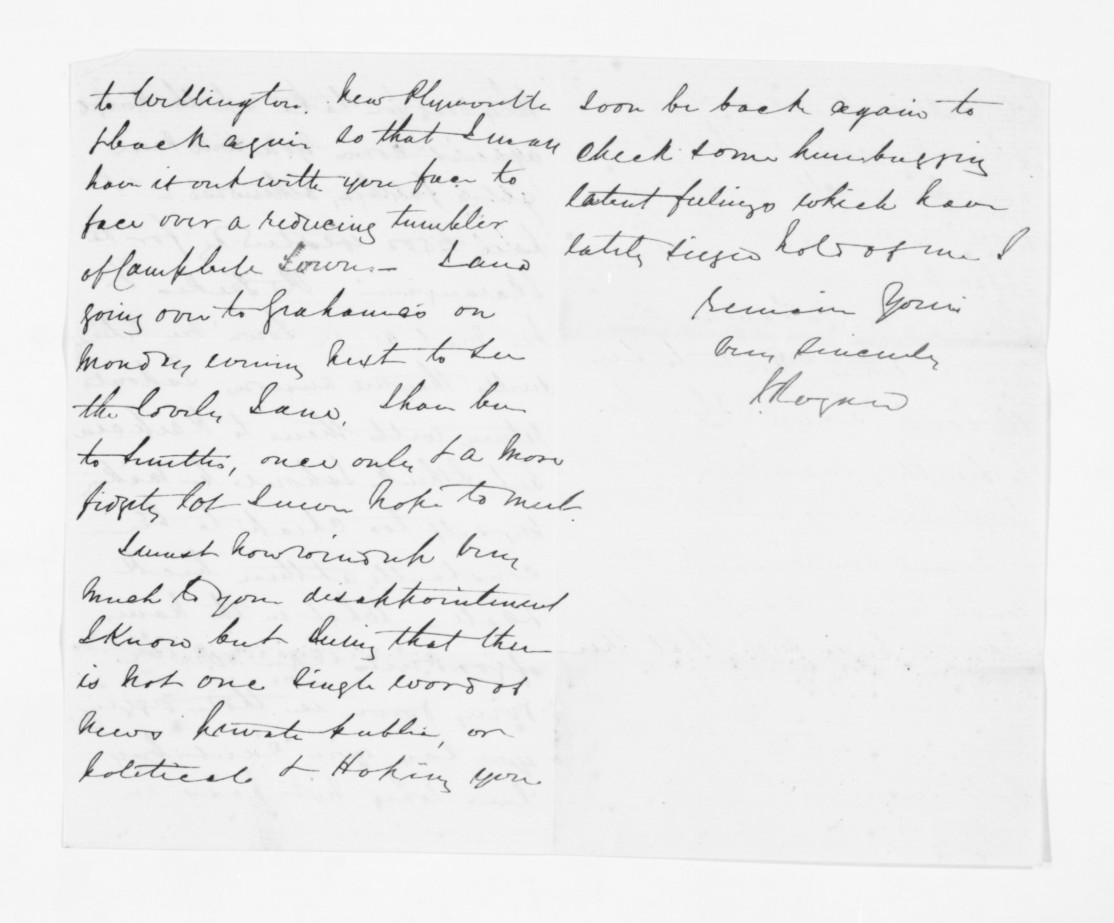 to Wellington. New Plymouth
& back again so that I may
have it out with you face to
face over a reducing tumbler
of Campbell Town — I am
going over to Grahams on
Monday evening next to see
the lovely Jane. I have been
to Smiths, once only & a more
fidgety lot I never hope to meet.
I must now wind up very
much to your disappointment
I know but seeing that there
is not one single word of
news private public, or
political & Hoping you
soon be back again to
check some humbugging
latent feelings which have
lately seized hold of me I
remain Yours
very sincerely
Rogan